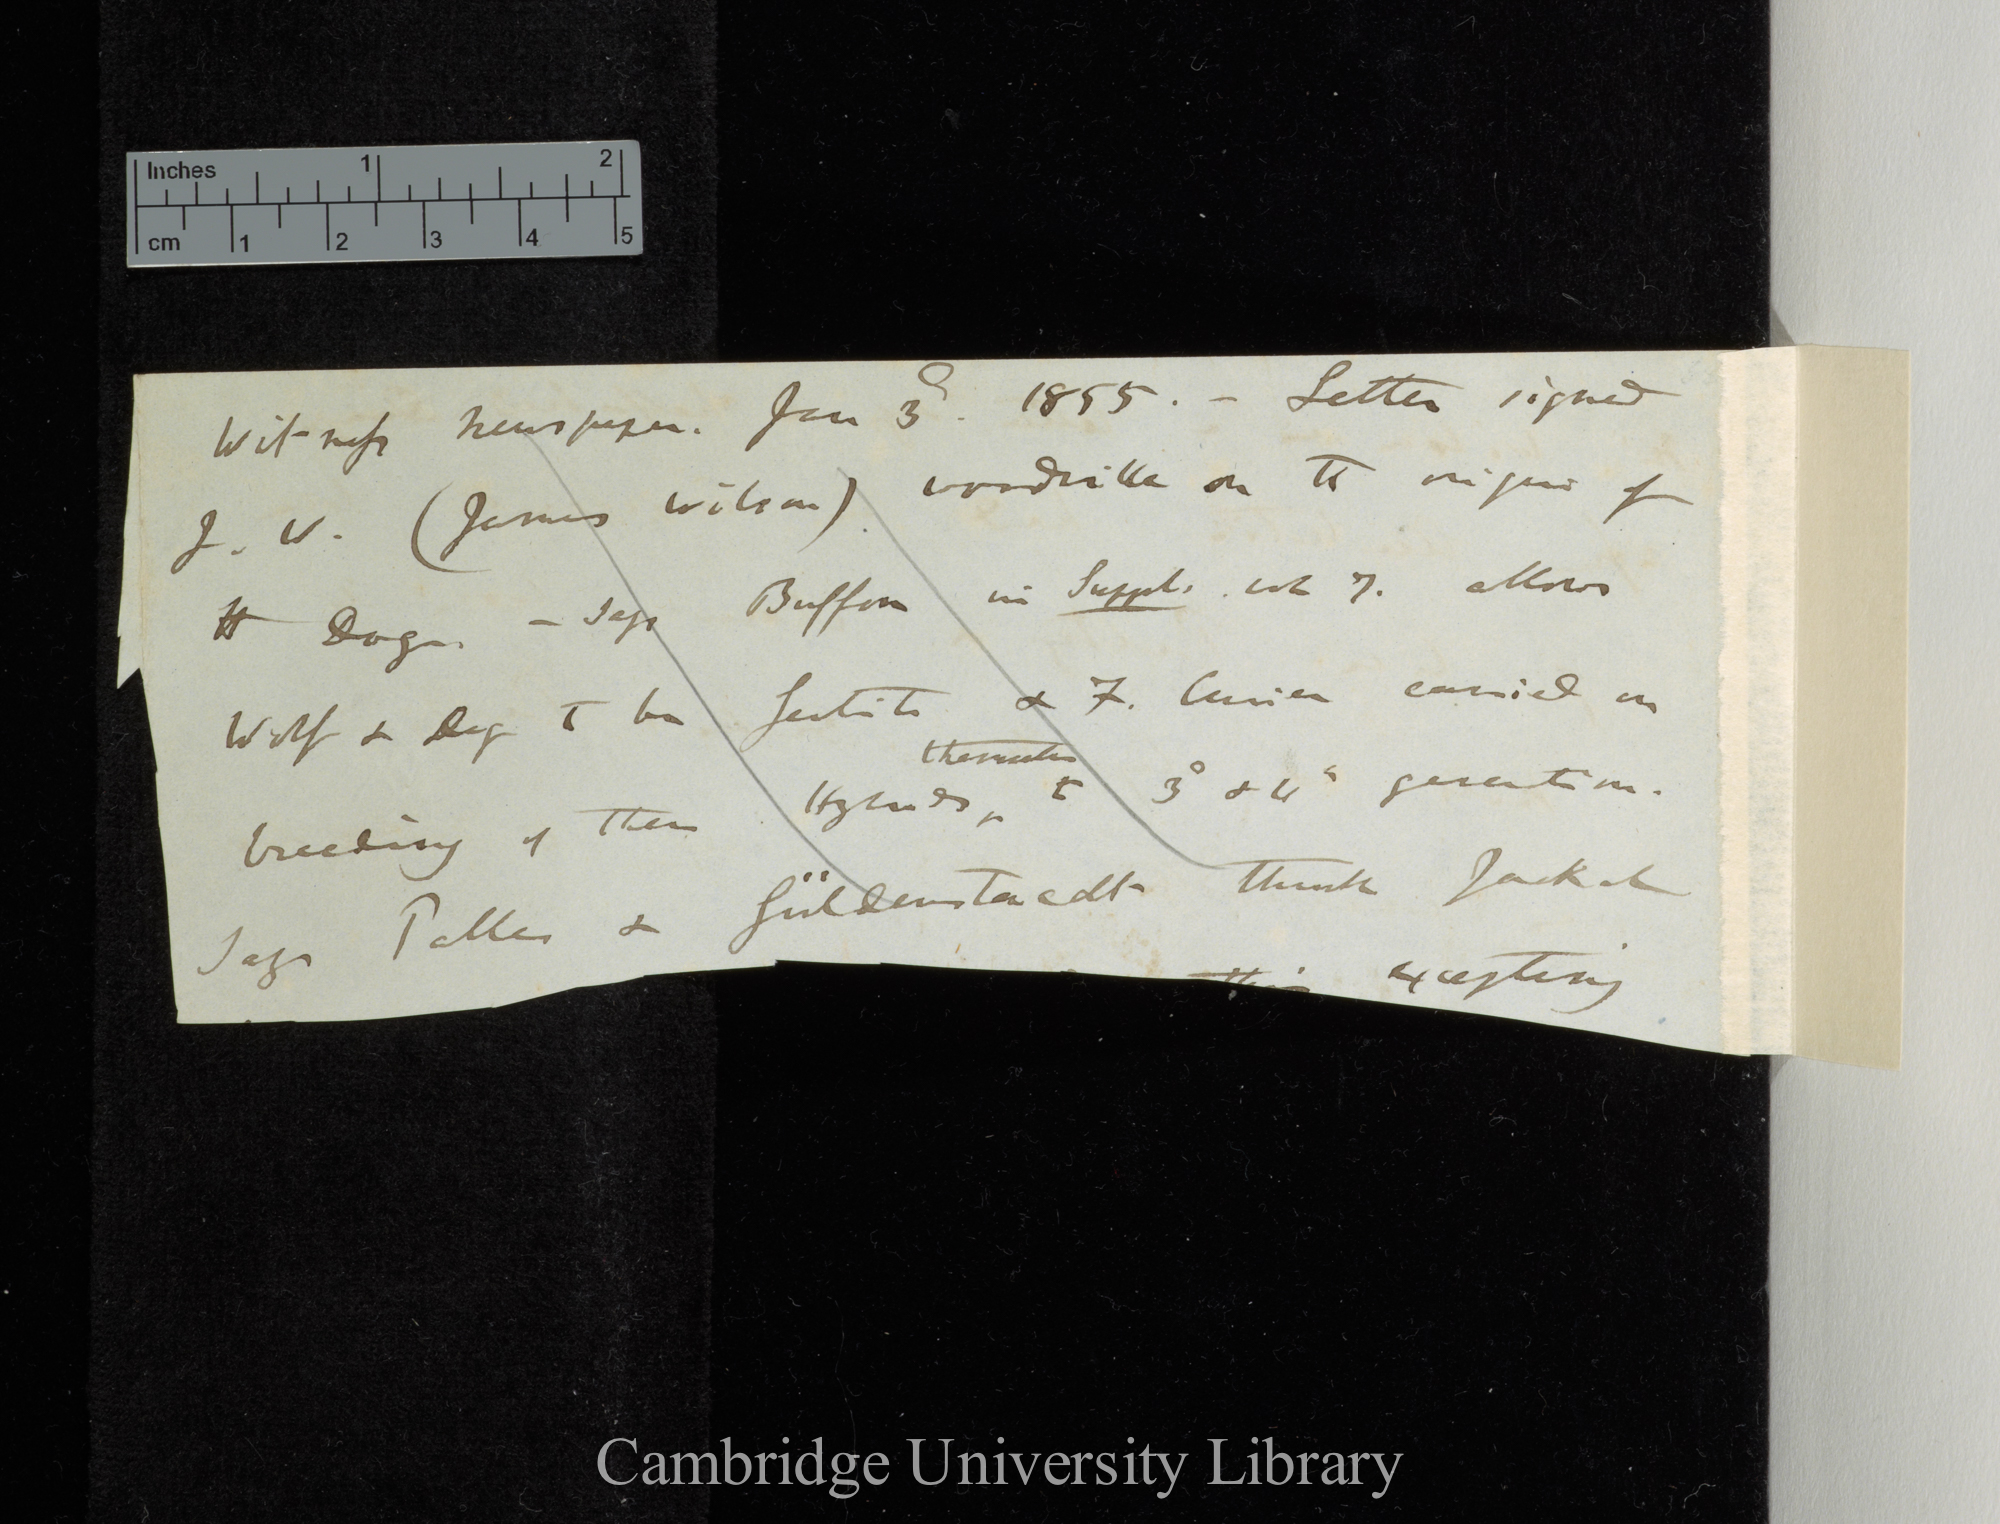 Inches 1 2
cm 1 2 3 4 5
Witness Newspaper. Jan 3d. 1855. – Letter signed
J. W. (James Wilson) Woodville on the origin of
the Dog. – Says Buffon in Suppl. vol 7. allows
Wolf & Dog to be fertile & F. Cuvier carried on
themselves
breeding of these Hybrids, to 3d & 4th generation.
Says Pallas & Güldenstaedt think Jackal
this excepting
Cambridge University Library